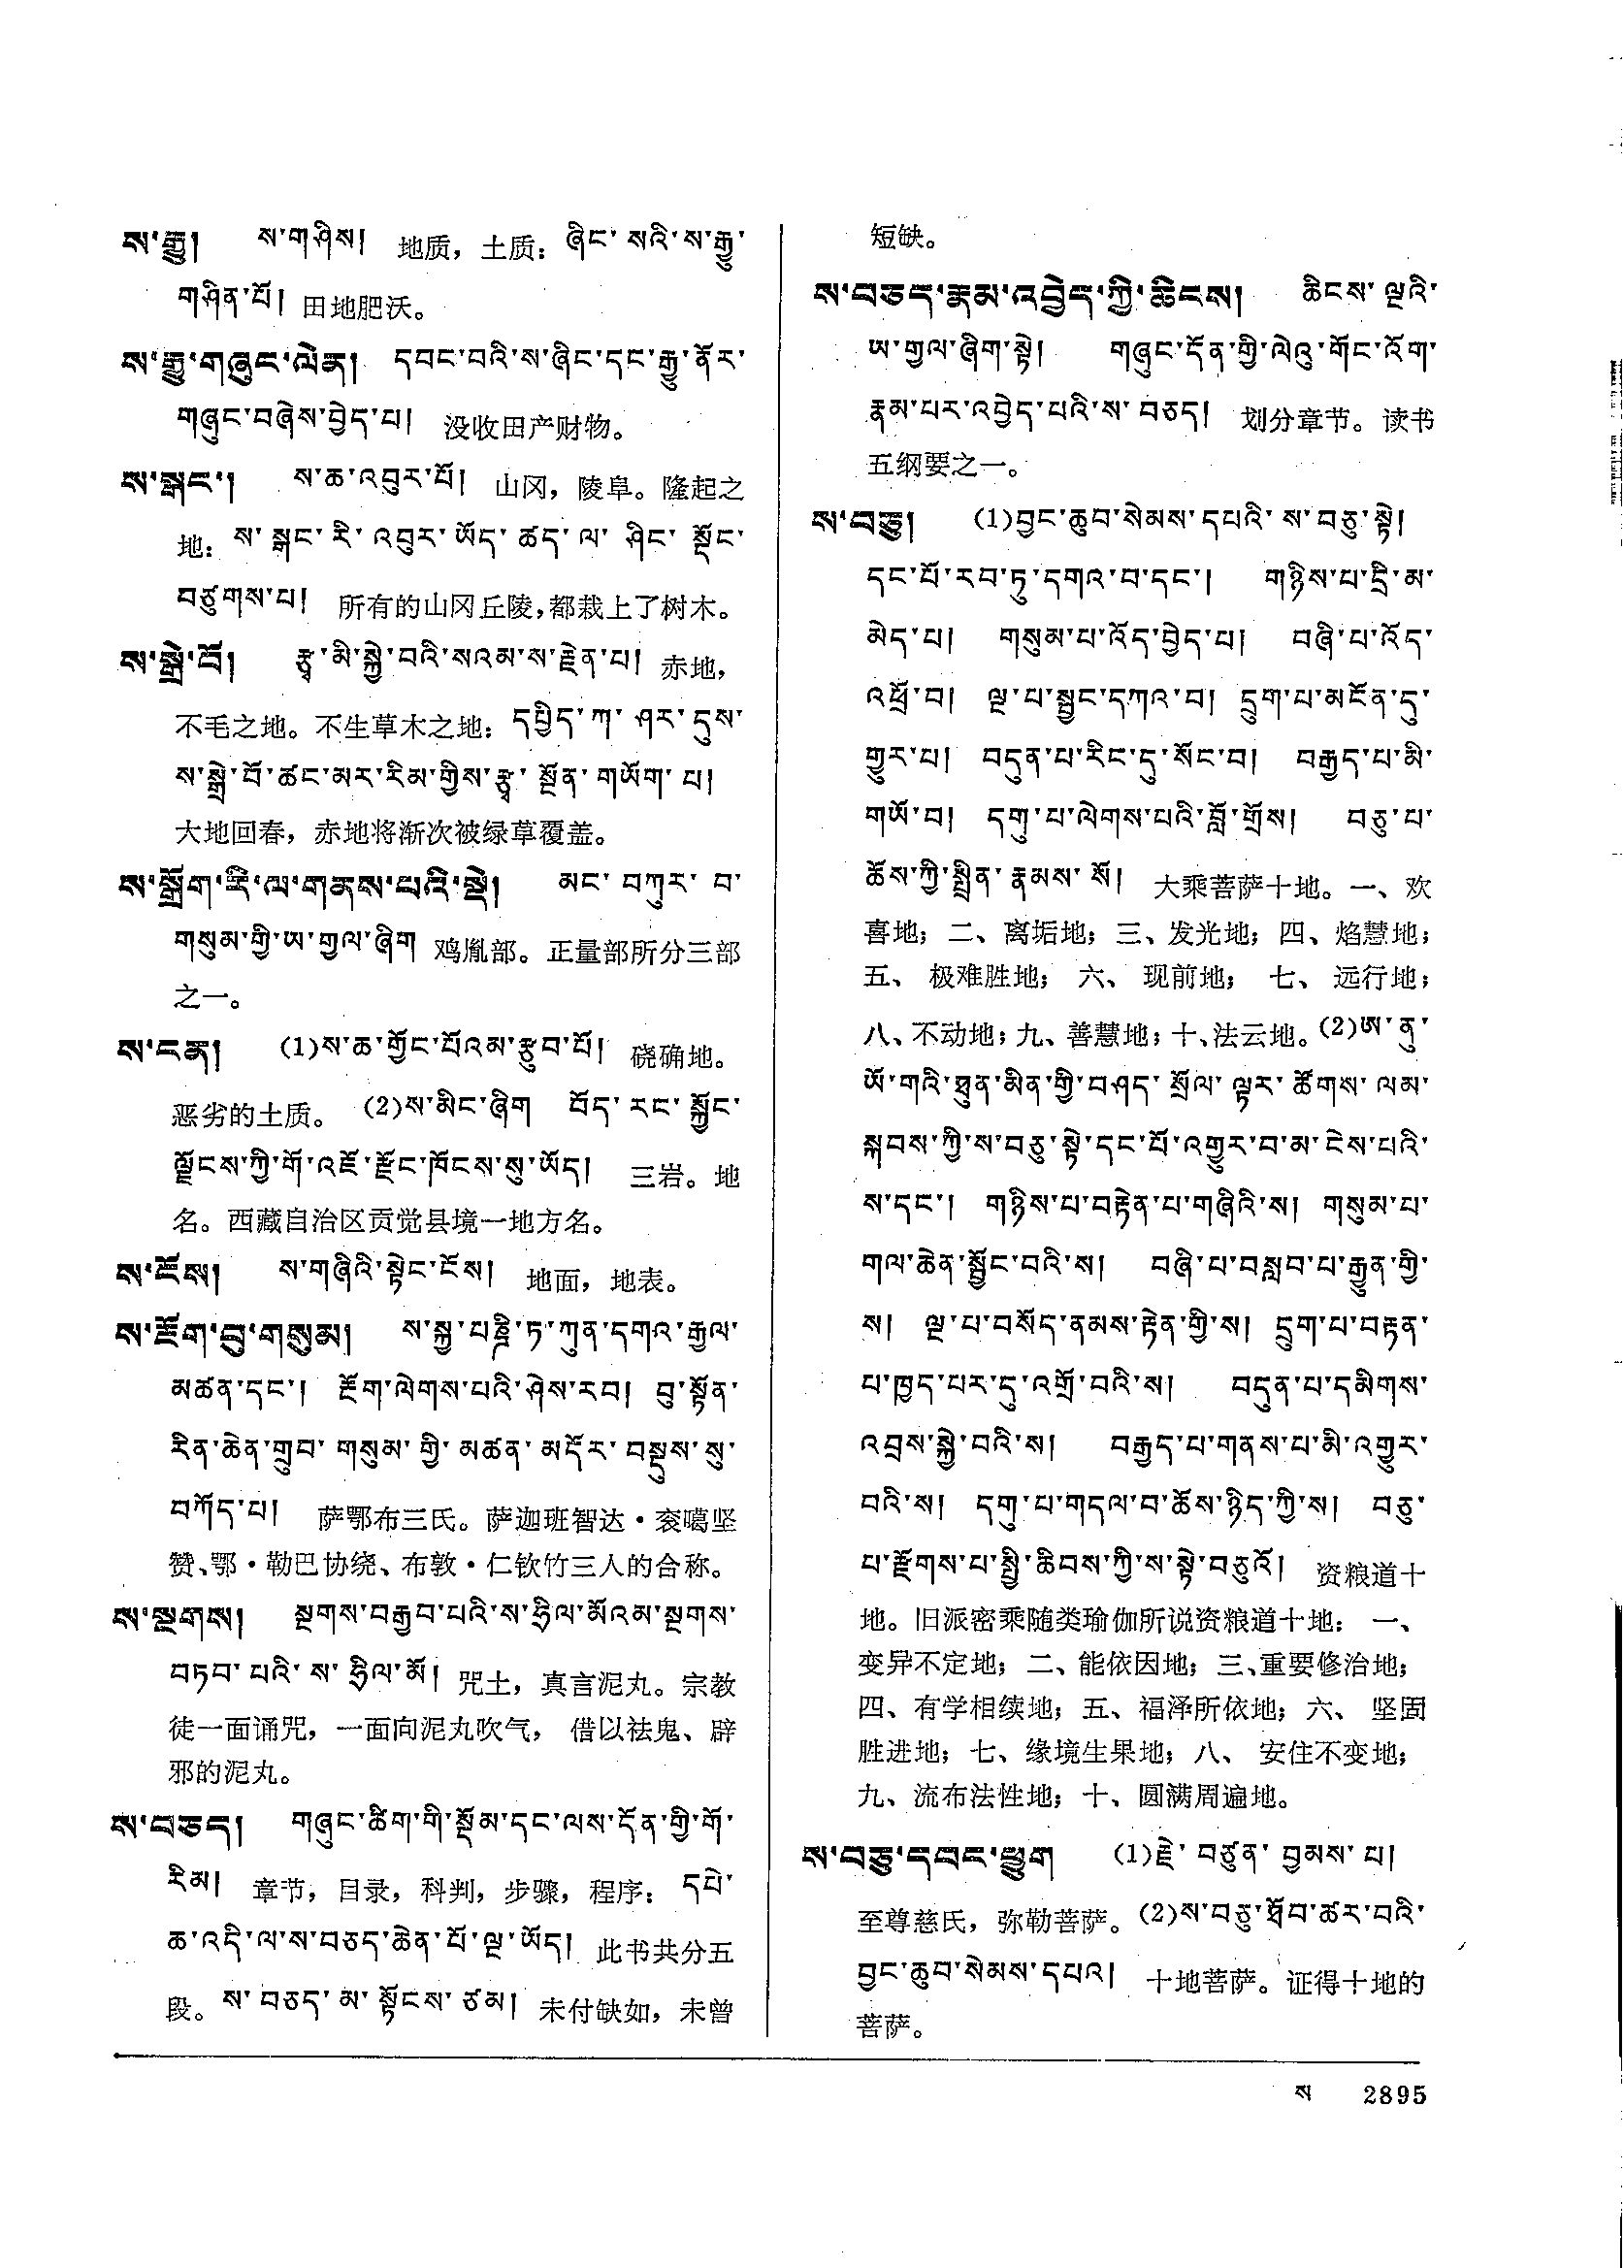 ས་རྒྱུ། ས་གཤིས། 地质，土质：ཞིང་ སའི་ས་རྒྱུ་
གཤིན་པོ། 田地肥沃。
ས་རྒྱུ་གཞུང་ལེན། དབང་བའི་ས་ཞིང་དང་རྒྱུ་ནོར་
གཞུང་བཞེས་བྱེད་པ། 没收田产财物。
ས་སྒང་། ས་ཆ་འབུར་པོ། 山冈，陵阜。隆起之
地：ས་ སྒང་ རི་ འབུར་ ཡོད་ ཚད་ ལ་ ཤིང་ སྡོང་
བཙུགས་པ། 所有的山冈丘陵，都栽上了树木。
ས་སྒྲེ་བོ། རྩྭ་མི་སྐྱེ་བའི་སའམ་ས་རྗེན་པ། 赤地，
不毛之地。不生草木之地：དཔྱིད་ཀ་ ཤར་དུས་
ས་སྒྲེ་བོ་ཚང་མར་རིམ་གྱིས་རྩྭ་ སྔོན་ གཡོག་ པ།
大地回春，赤地将渐次被绿草覆盖。
ས་སྒྲོག་རི་ལ་གནས་པའི་སྡེ། མང་ བཀུར་ བ་
གསུམ་གྱི་ཡ་གྱལ་ཞིག 鸡胤部。正量部所分三部
之一。
ས་ངན། (1)ས་ཆ་གྱོང་པོའམ་རྩུབ་པོ། 硗确地。
恶劣的土质。(2)ས་མིང་ཞིག བོད་ རང་ སྐྱོང་
ལྗོངས་ཀྱི་གོ་འཇོ་རྫོང་ཁོངས་སུ་ཡོད། 三岩。地
名。西藏自治区贡觉县境一地方名。
ས་ངོས། ས་གཞིའི་སྟེང་ངོས། 地面，地表。
ས་རྔོག་བུ་གསུམ། ས་སྐྱ་པཎྜི་ཏ་ཀུན་དགའ་རྒྱལ་
མཚན་དང་། རྔོག་ལེགས་པའི་ཤེས་རབ། བུ་སྟོན་
རིན་ཆེན་གྲུབ་ གསུམ་ གྱི་ མཚན་ མདོར་ བསྡུས་ སུ་
བཀོད་པ། 萨鄂布三氏。萨迦班智达・衮噶坚
赞、鄂・勒巴协绕、布敦・仁钦竹三人的合称。
ས་སྔགས། སྔགས་བརྒྱབ་པའི་ས་ཧྲིལ་མོའམ་སྔགས་
བཏབ་ པའི་ ས་ ཧྲིལ་མོ། 咒土，真言泥丸。宗教
徒一面诵咒，一面向泥丸吹气，借以祛鬼、辟
邪的泥丸。
ས་བཅད། གཞུང་ཚིག་གི་སྡོམ་དང་ལས་དོན་གྱི་གོ་
རིམ། 章节，目录，科判，步骤，程序：དཔེ་
ཆ་འདི་ལ་ས་བཅད་ཆེན་པོ་ལྔ་ཡོད། 此书共分五
段。ས་ བཅད་ མ་ སྟོངས་ ཙམ། 未付缺如，未曾
短缺。
ས་བཅད་རྣམ་འབྱེད་ཀྱི་ཆིངས། ཆིངས་ ལྔའི་
ཡ་གྱལ་ཞིག་སྟེ། གཞུང་དོན་གྱི་ལེའུ་གོང་འོག་
རྣམ་པར་འབྱེད་པའི་ས་ བཅད། 划分章节。读书
五纲要之一。
ས་བཅུ། (1)བྱང་ཆུབ་སེམས་དཔའི་ ས་བཅུ་སྟེ།
དང་པོ་རབ་ཏུ་དགའ་བ་དང་། གཉིས་པ་དྲི་མ་
མེད་པ། གསུམ་པ་འོད་བྱེད་པ། བཞི་པ་འོད་
འཕྲོ་བ། ལྔ་པ་སྦྱང་དཀའ་བ། དྲུག་པ་མངོན་དུ་
གྱུར་པ། བདུན་པ་རིང་དུ་སོང་བ། བརྒྱད་པ་མི་
གཡོ་བ། དགུ་པ་ལེགས་པའི་བློ་གྲོས། བཅུ་པ་
ཆོས་ཀྱི་སྤྲིན་ རྣམས་ སོ། 大乘菩萨十地。一、欢
喜地；二、离垢地；三、发光地；四、焰慧地；
五、极难胜地；六、现前地；七、远行地；
八、不动地；九、善慧地；十、法云地。(2)ཨ་ནུ་
ཡོ་གའི་ཐུན་མིན་གྱི་བཤད་ སྲོལ་ ལྟར་ ཚོགས་ ལམ་
སྐབས་ཀྱི་ས་བཅུ་སྟེ་དང་པོ་འགྱུར་བ་མ་ངེས་པའི་
ས་དང་། གཉིས་པ་བརྟེན་པ་གཞིའི་ས། གསུམ་པ་
གལ་ཆེན་སྦྱོང་བའི་ས། བཞི་པ་བསླབ་པ་རྒྱུན་གྱི་
ས། ལྔ་པ་བསོད་ནམས་རྟེན་གྱི་ས། དྲུག་པ་བརྟན་
པ་ཁྱད་པར་དུ་འགྲོ་བའི་ས། བདུན་པ་དམིགས་
འབྲས་སྐྱེ་བའི་ས། བརྒྱད་པ་གནས་པ་མི་འགྱུར་
བའི་ས། དགུ་པ་གདལ་བ་ཆོས་ཉིད་ཀྱི་ས། བཅུ་
པ་རྫོགས་པ་སྤྱི་ཆིབས་ཀྱི་ས་སྟེ་བཅུའོ། 资粮道十
地。旧派密乘随类瑜伽所说资粮道十地：一、
变异不定地；二、能依因地；三、重要修治地；
四、有学相续地；五、福泽所依地；六、坚固
胜进地；七、缘境生果地；八、安住不变地；
九、流布法性地；十、圆满周遍地。
ས་བཅུ་དབང་ཕྱུག (1)རྗེ་ བཙུན་ བྱམས་ པ།
至尊慈氏，弥勒菩萨。(2)ས་བཅུ་ཐོབ་ཚར་བའི་
བྱང་ཆུབ་སེམས་དཔའ། 十地菩萨。证得十地的
菩萨。
ས 2895